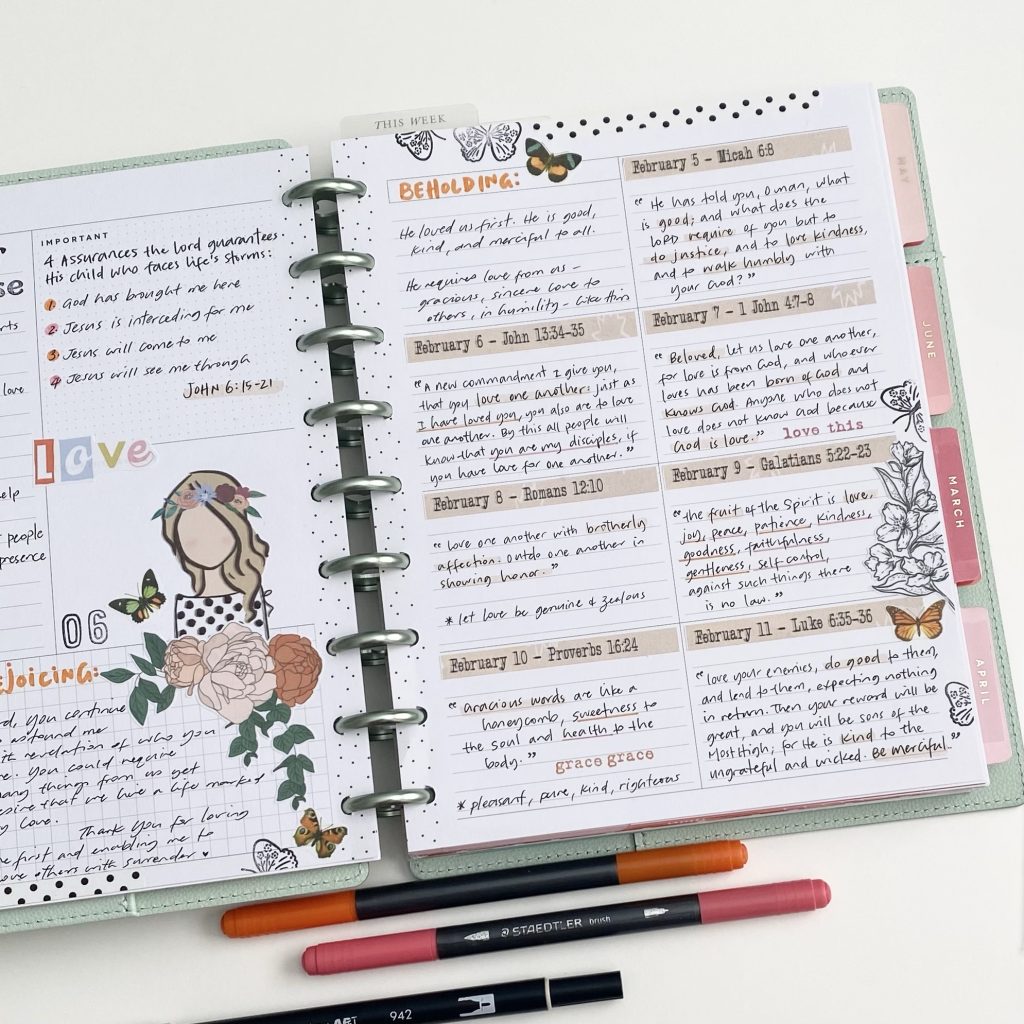 se
rts
love
elp
people
presence
IMPORTANT
4 Assurances the Lord guarantees
His child who faces life's storms:
1. God has brought me here
2. Jesus is interceding for me
3. Jesus will come to me
4 Jesus will see me through
JOHN 6:15-21
Love
06
EJOICING:
rd, you continue
astound me
revelation of who you
re. You could require
many things from us yet
esire that we live a life marked
y love.
Thank You for loving
me first and enabling me to
love others with surrender
THIS WEEK
BEHOLDING:
He loved us first. He is good,
kind, and merciful to all.
He requires love from us -
gracious, sincere love to
others, in humility - like Him
February 5 - Micah 6:8
"He has told you, O man, what
is good; and what does the
LORD require of you but to
do justice, and to love kindness,
and to walk humbly with
your God?"
February 6 - John 13:34-35
"A new commandment I give you,
that you love one another: just as
I have loved you, you also are to love
one another. By this all people will
know that you are my disciples, if
you have love for one another."
February 7 - 1 John 4:7-8
"Beloved, let us love one another,
for love is from God, and whoever
loves has been born of God and
knows God. Anyone who does not
love does not know God because
God is love." love this
February 8 - Romans 12:10
"Love one another with brotherly
affection. Outdo one another in
showing honor."
* let love be genuine & zealous
February 9 - Galatians 5:22-23
"the fruit of the Spirit is love,
joy, peace, patience, kindness,
goodness, faithfulness,
gentleness, self control,
against such things there
is no law."
February 10 - Proverbs 16:24
"Gracious words are like a
honeycomb, sweetness to
the soul and health to the
body."
grace grace
* pleasant, pure, kind, righteous
February 11 - Luke 6:35-36
"Love your enemies, do good to them,
and lend to them, expecting nothing
in return. Then your reward will be
great, and you will be sons of the
Most High; for He is kind to the
ungrateful and wicked. Be merciful."
MAY
JUNE
MARCH
APRIL
STAEDTLER brush
ART 942